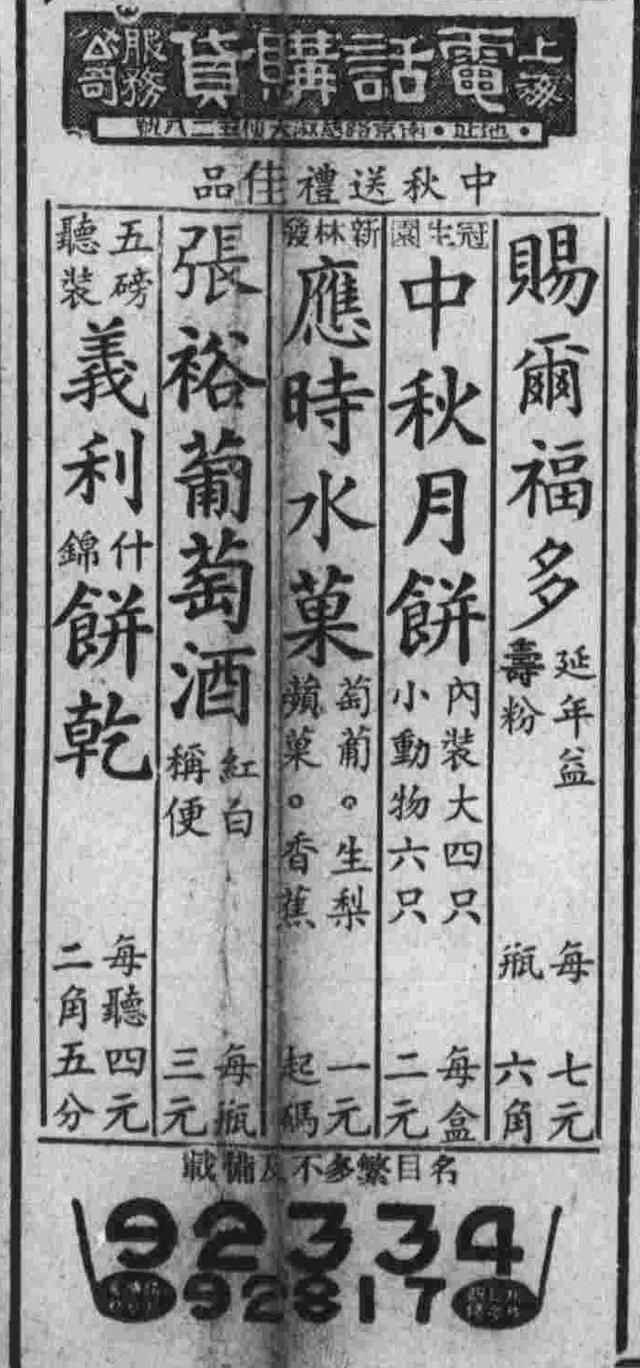 上海電話購貨服務公司
地址・南京路慈淑大樓五二八號
中秋送禮佳品
賜爾福多
延年益
壽粉
每瓶
七元
六角
冠生園
中秋月餅
內裝大四只
小動物六只
每盒
二元
新林發
應時水菓
萄葡。生梨
蘋菓。香蕉
一元
起碼
張裕葡萄酒
紅白
稱便
每瓶
三元
五磅
聽裝
義利
什錦
餅乾
每聽四元
二角五分
名目繁多不及備載
92334
92817